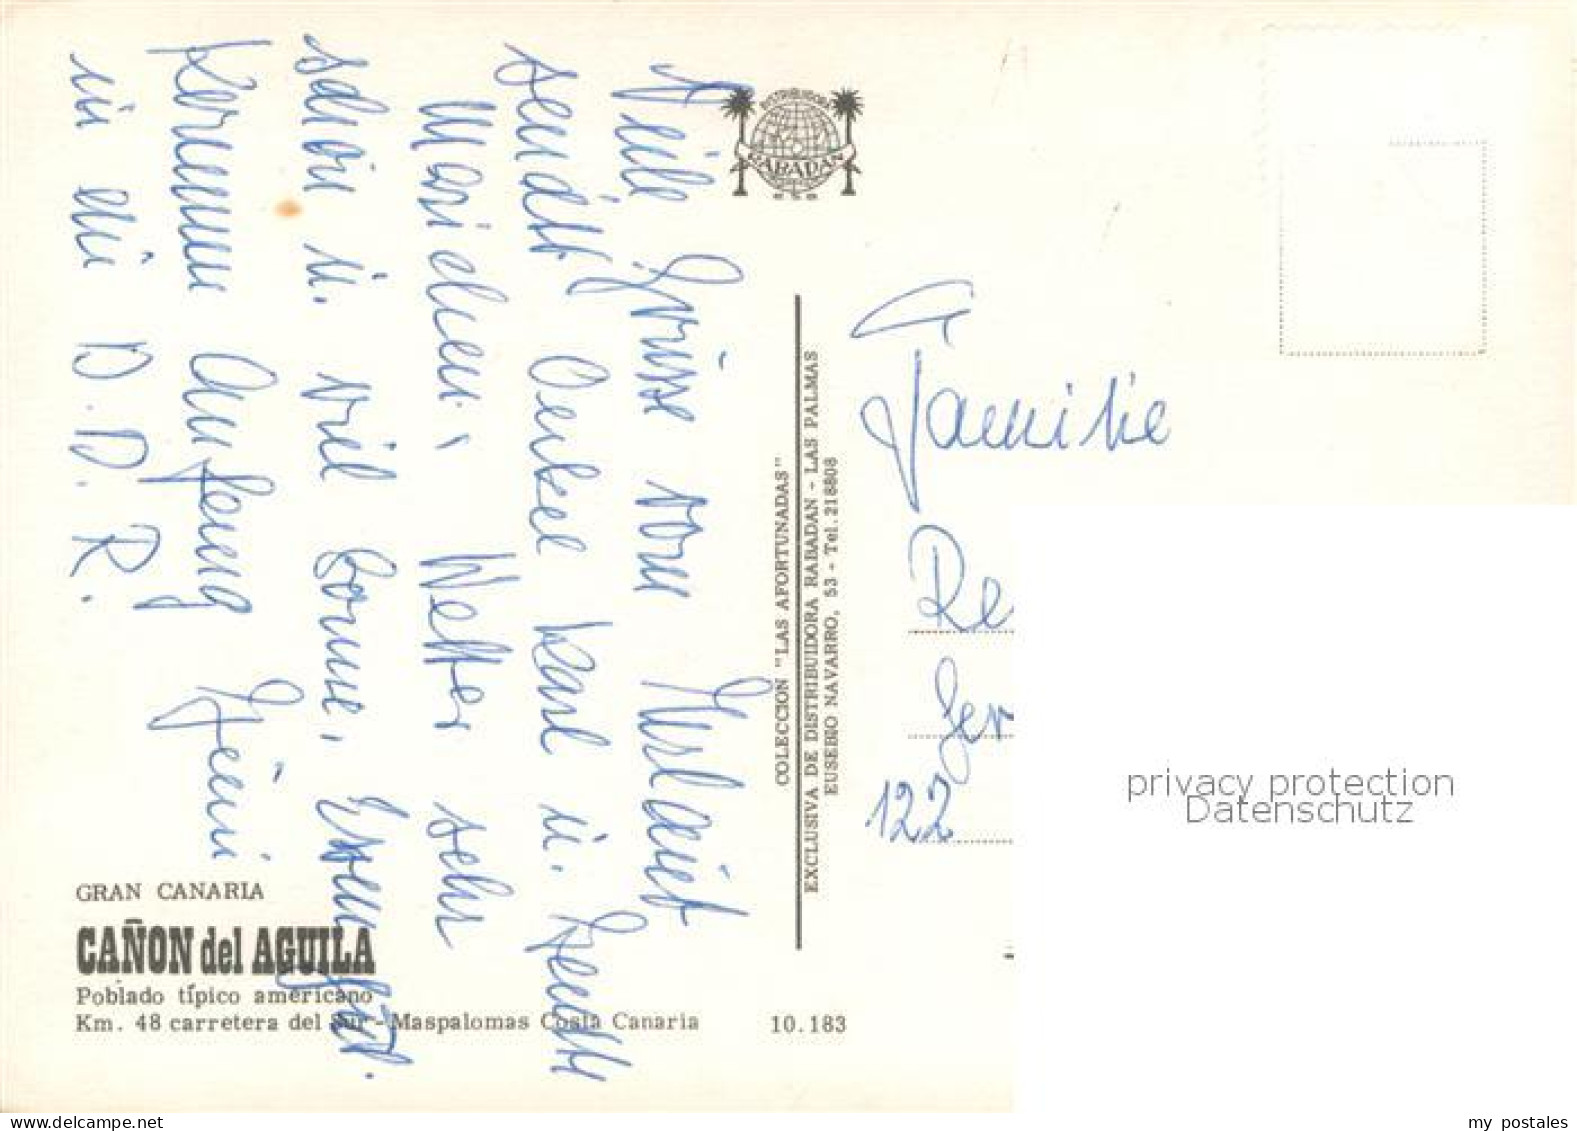 Viele Grüsse vom Urlaub
sendet Onkel Karl u.
Mariechen, Wetter sehr
schön u. viel Sonne,
Kommen Anfang Juni
in die D.D.R.
DISTRIBUIDORA
RABADAN
COLECCION "LAS AFORTUNADAS"
EXCLUSIVA DE DISTRIBUIDORA RABADAN - LAS PALMAS
EUSEBIO NAVARRO, 53 - Tel. 218808
Familie
Re
Ger
122
GRAN CANARIA
CAÑON del AGUILA
Poblado típico américano
Km. 48 carretera del Sur - Maspalomas Costa Canaria
10.183
privacy protection
Datenschutz
www.delcampe.net
my postales